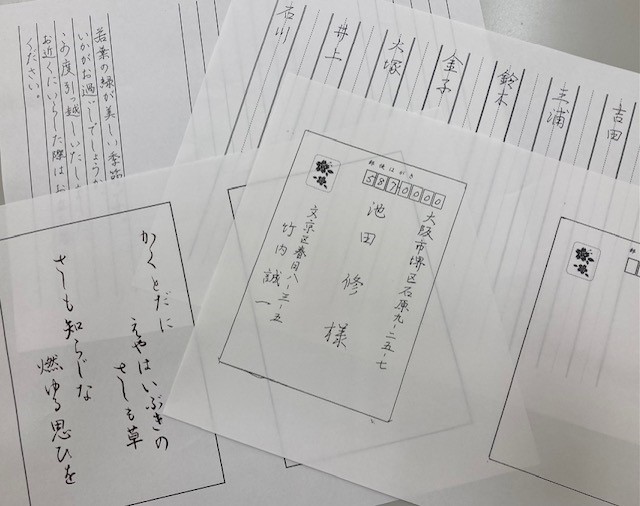 吉田
三浦
鈴木
金子
大塚
井上
石川
若葉の緑が美しい季
いかがお過ごしでしょうか
この度引っ越しいたし
お近くにいらした際はお
ください。
郵便はがき
5870000
大阪市堺区石原九-二五-七
池田 修 様
文京区春日八-三-五
竹内誠一
かくとだに
えやはいぶきの
さしも草
さしも知らじな
燃ゆる思ひを